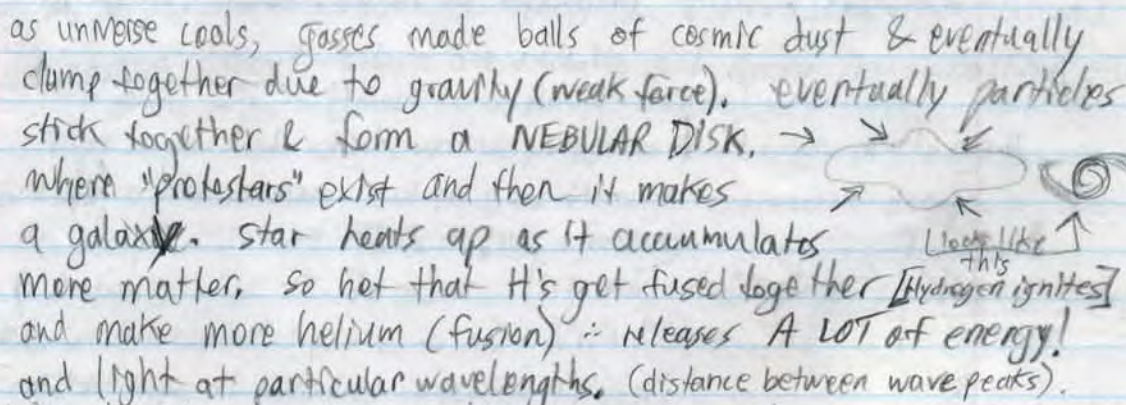 as universe cools, gasses made balls of cosmic dust & eventually
clump together due to gravity (weak force). eventually particles
stick together & form a NEBULAR DISK. →
where "protostars" exist and then it makes
a galaxy. star heats up as it accumulates
look like this
more matter. so hot that H's get fused together [Hydrogen ignites]
and make more helium (fusion) ∴ releases A LOT of energy!
and light at particular wavelengths. (distance between wave peaks).